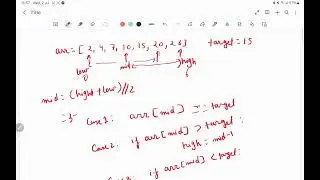 Title
arr = [ 2, 4, 7, 10, 15, 20, 26] target = 15
low mid high
0 6
mid = (hight + low)//2
= 3 Case 1: arr [mid] == target
Case 2: if arr [mid] > target :
high = mid-1
if arr [mid] < target: